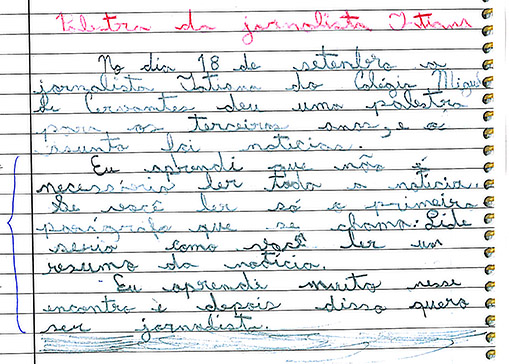 Palestra da jornalista Tatiana
No dia 18 de setembro a
jornalista Tatiana do Colégio Miguel
de Cervantes deu uma palestra
para os terceiros anos, e o
asunto foi noticias.
Eu aprendi que não é
necessário ler toda a notícia.
Se você ler só o primeiro
parágrafo que se chama: Lide
seria como você ler um
resumo da notícia.
Eu aprendi muito nesse
encontro e depois disso quero
ser jornalista.